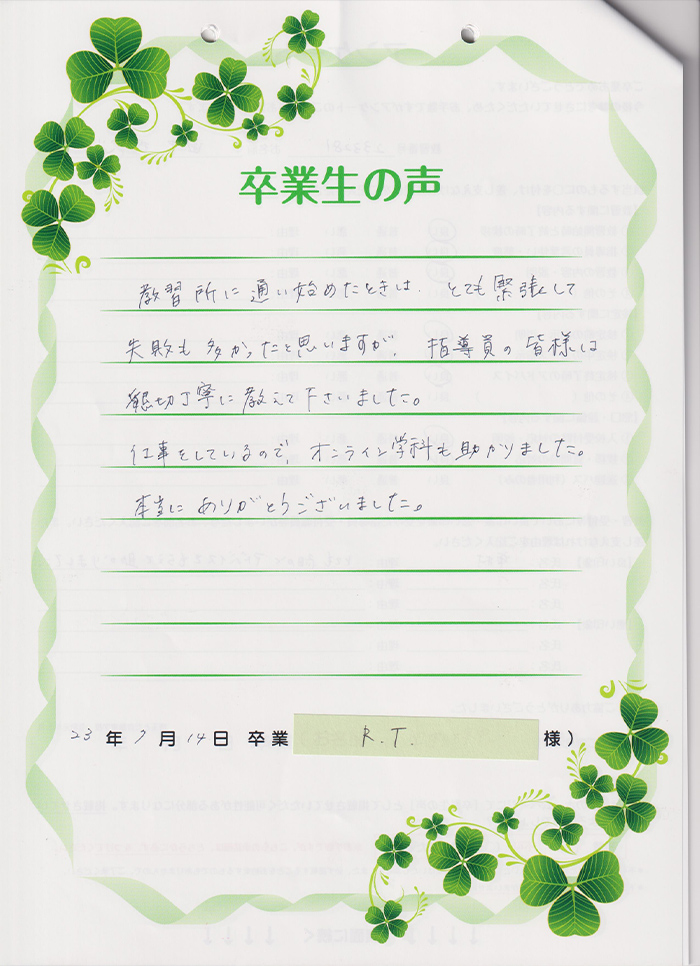 卒業生の声
教習所に通い始めたときは、とても緊張して
失敗も多かったと思いますが、指導員の皆様は
懇切丁寧に教えて下さいました。
仕事をしているので、オンライン学科も助かりました。
本当にありがとうございました。
23年7月14日 卒業 R.T. 様)